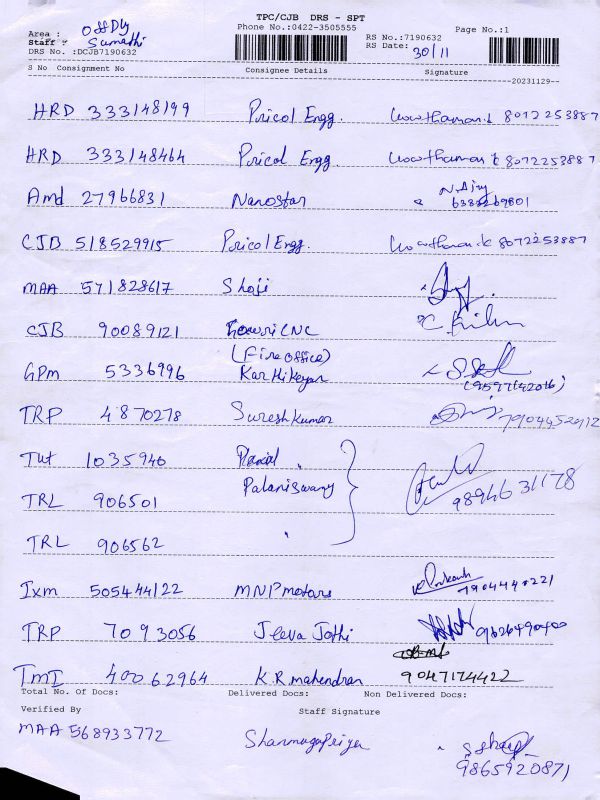 TPC/CJB DRS - SPT
Phone No.:0422-3505555
Page No.:1
Area : Off Dly
Staff : Sumathi
DRS No. :DCJB7190632
RS No.:7190632
RS Date: 30/11
S No Consignment No Consignee Details Signature
20231129
HRD 333148199 Pricol Engg. Gowthaman.k 8072253887
HRD 333148464 Pricol Engg. Gowthaman k 8072253887
Amd 27966831 Nanostar N. Ajay
CJB 518529915 Pricol Engg. Gowthaman.k 8072253887
MAA 571828617 Shoji
CJB 90089121 Gowri CNC
(Fire office)
GPM 5336996 Karthikeyan
(9597142016)
TRP 4870278 Suresh Kumar
Tut 1035940
Palaniswamy
TRL 906501 9894631178
TRL 906562
Ixm 505444122 MNP motors 7904440221
TRP 7093056 Jeeva Jothi 9626490400
TMI 40062964 K.R. mahendran 9047174422
Total No. Of Docs: Delivered Docs: Non Delivered Docs:
Verified By Staff Signature
MAA 568933772 Shanmugapriya
9865920871